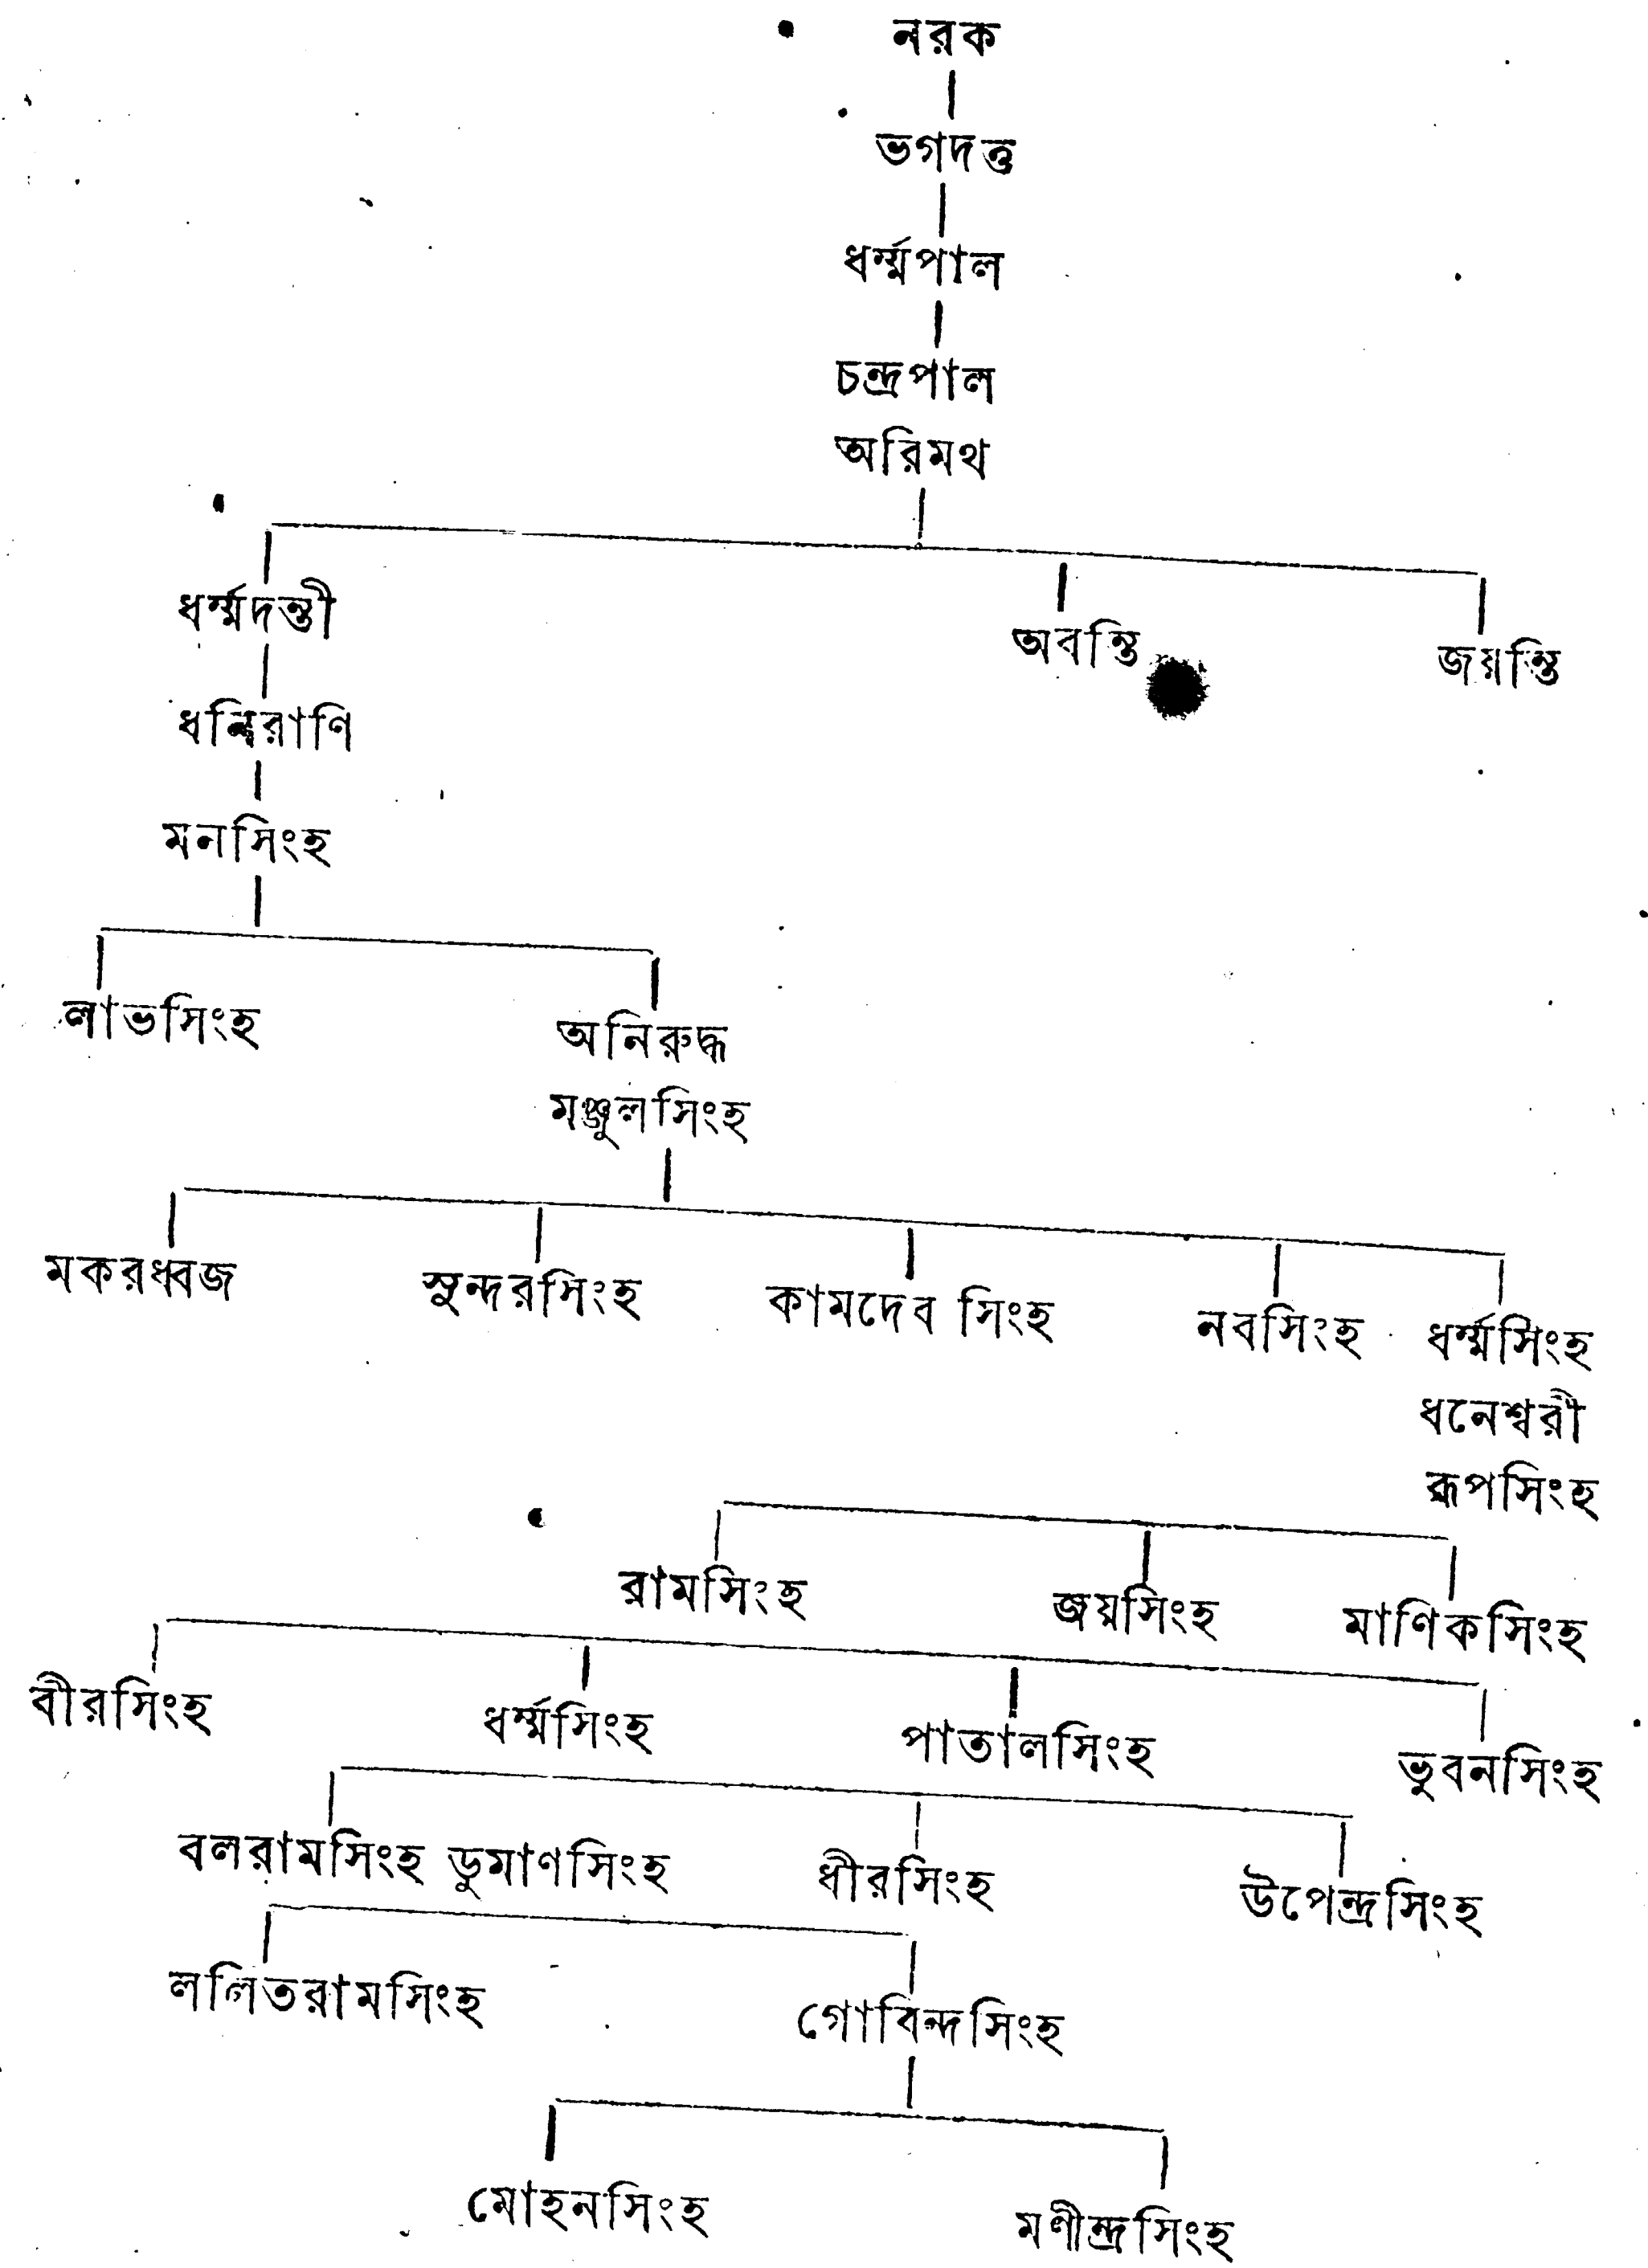 নরক
ভগদত্ত
ধর্ম্মপাল
চন্দ্রপাল
অরিমথ
ধর্ম্মদন্তী অবন্তি জয়ন্তি
মনসিংহ
লাভসিংহ অনিরুদ্ধ
মঞ্জুলসিংহ
মকরধ্বজ সুন্দরসিংহ কামদেব সিংহ নবসিংহ ধর্ম্মসিংহ
ধনেশ্বরী
রূপসিংহ
রামসিংহ জয়সিংহ মাণিকসিংহ
বীরসিংহ ধর্ম্মসিংহ পাতালসিংহ ভুবনসিংহ
বলরামসিংহ ডুমাণসিংহ ধীরসিংহ উপেন্দ্রসিংহ
ললিতরামসিংহ গোবিন্দসিংহ
মোহনসিংহ মণীন্দ্রসিংহ